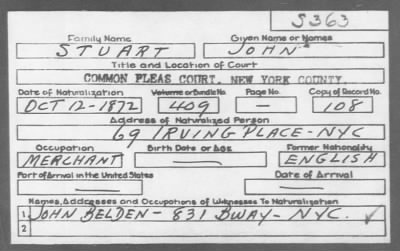 S363
Family Name Given Name or Names
STUART JOHN
Title and Location of Court
COMMON PLEAS COURT, NEW YORK COUNTY.
Date of Naturalization Volume or Bundle No. Page No. Copy of Record No.
OCT 12-1872 409 — 108
Address of Naturalized Person
69 IRVING PLACE-NYC
Occupation Birth Date or Age Former Nationality
MERCHANT — ENGLISH
Port of Arrival in the United States Date of Arrival
— —
Names, Addresses and Occupations of Witnesses To Naturalization
1. JOHN BELDEN - 831 BWAY - NYC. ✓
2